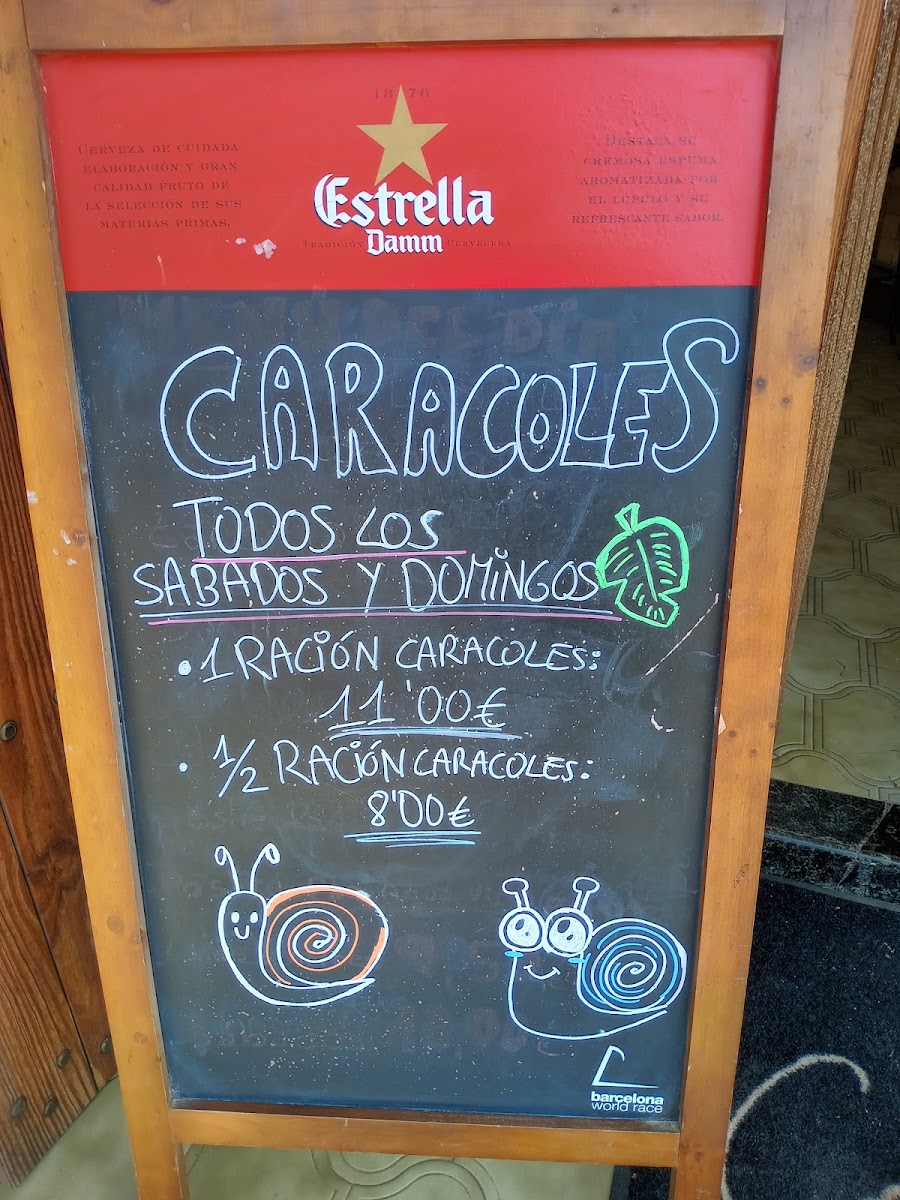 1876
CERVEZA DE CUIDADA
ELABORACIÓN Y GRAN
CALIDAD FRUTO DE
LA SELECCIÓN DE SUS
MATERIAS PRIMAS.
Estrella
TRADICIÓN Damm CERVECERA
DESTACA SU
CREMOSA ESPUMA
AROMATIZADA POR
EL LÚPULO Y SU
REFRESCANTE SABOR.
MENÚ DEL DÍA
CARACOLES
TODOS LOS
SABADOS Y DOMINGOS
• 1 RACIÓN CARACOLES:
11'00€
• 1/2 RACIÓN CARACOLES:
8'00€
barcelona
world race